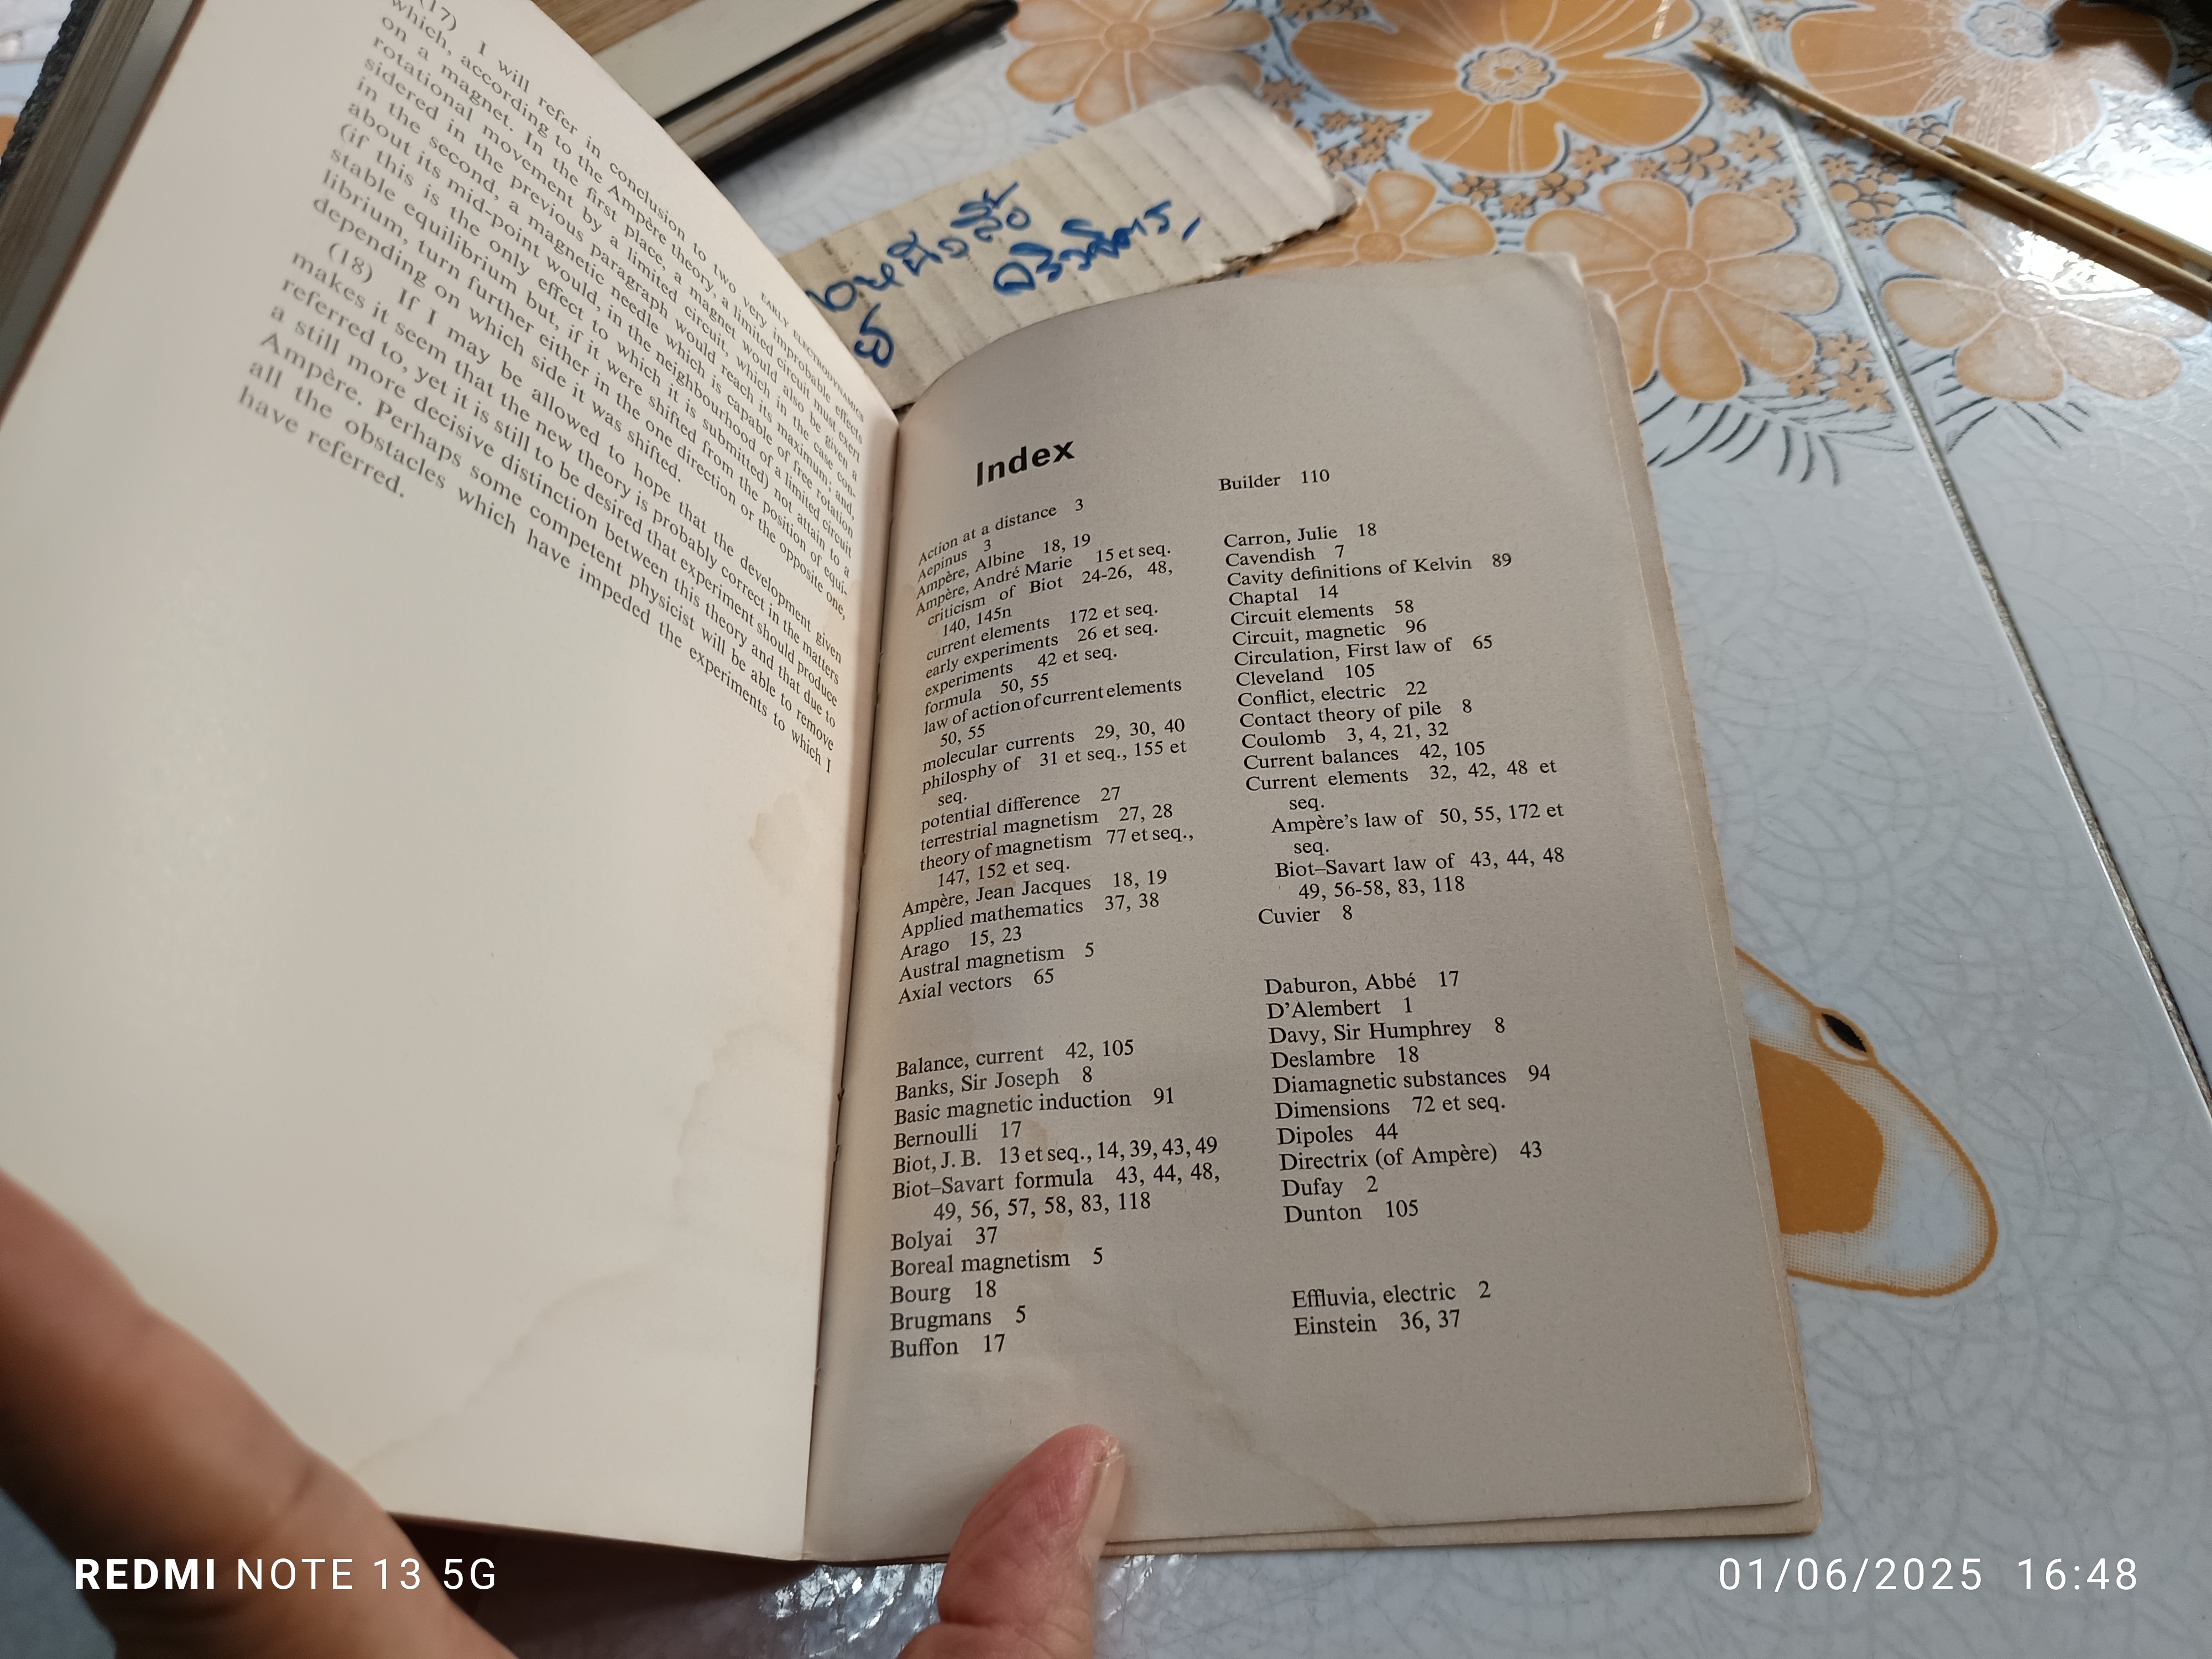 EARLY ELECTRODYNAMICS
(17) I will refer in conclusion to two very improbable effects
which, according to the Ampère theory, a limited circuit must exert
on a magnet. In the first place, a magnet would also be given a
rotational movement by a limited circuit, which in the case con-
sidered in the previous paragraph would reach its maximum; and,
in the second, a magnetic needle which is capable of free rotation
about its mid-point would, in the neighbourhood of a limited circuit
(if this is the only effect to which it is submitted) not attain to a
stable equilibrium but, if it were shifted from the position of equi-
librium, turn further either in the one direction or the opposite one,
depending on which side it was shifted.
(18) If I may be allowed to hope that the development given
makes it seem that the new theory is probably correct in the matters
referred to, yet it is still to be desired that experiment should produce
a still more decisive distinction between this theory and that due to
Ampère. Perhaps some competent physicist will be able to remove
all the obstacles which have impeded the experiments to which I
have referred.
Index
Action at a distance 3
Aepinus 3
Ampère, Albine 18, 19
Ampère, André Marie 15 et seq.
criticism of Biot 24-26, 48,
140, 145n
current elements 172 et seq.
early experiments 26 et seq.
experiments 42 et seq.
formula 50, 55
law of action of current elements
50, 55
molecular currents 29, 30, 40
philosphy of 31 et seq., 155 et
seq.
potential difference 27
terrestrial magnetism 27, 28
theory of magnetism 77 et seq.,
147, 152 et seq.
Ampère, Jean Jacques 18, 19
Applied mathematics 37, 38
Arago 15, 23
Austral magnetism 5
Axial vectors 65
Balance, current 42, 105
Banks, Sir Joseph 8
Basic magnetic induction 91
Bernoulli 17
Biot, J. B. 13 et seq., 14, 39, 43, 49
Biot–Savart formula 43, 44, 48,
49, 56, 57, 58, 83, 118
Bolyai 37
Boreal magnetism 5
Bourg 18
Brugmans 5
Buffon 17
Builder 110
Carron, Julie 18
Cavendish 7
Cavity definitions of Kelvin 89
Chaptal 14
Circuit elements 58
Circuit, magnetic 96
Circulation, First law of 65
Cleveland 105
Conflict, electric 22
Contact theory of pile 8
Coulomb 3, 4, 21, 32
Current balances 42, 105
Current elements 32, 42, 48 et
seq.
Ampère's law of 50, 55, 172 et
seq.
Biot–Savart law of 43, 44, 48
49, 56-58, 83, 118
Cuvier 8
Daburon, Abbé 17
D'Alembert 1
Davy, Sir Humphrey 8
Deslambre 18
Diamagnetic substances 94
Dimensions 72 et seq.
Dipoles 44
Directrix (of Ampère) 43
Dufay 2
Dunton 105
Effluvia, electric 2
Einstein 36, 37
REDMI NOTE 13 5G
01/06/2025 16:48